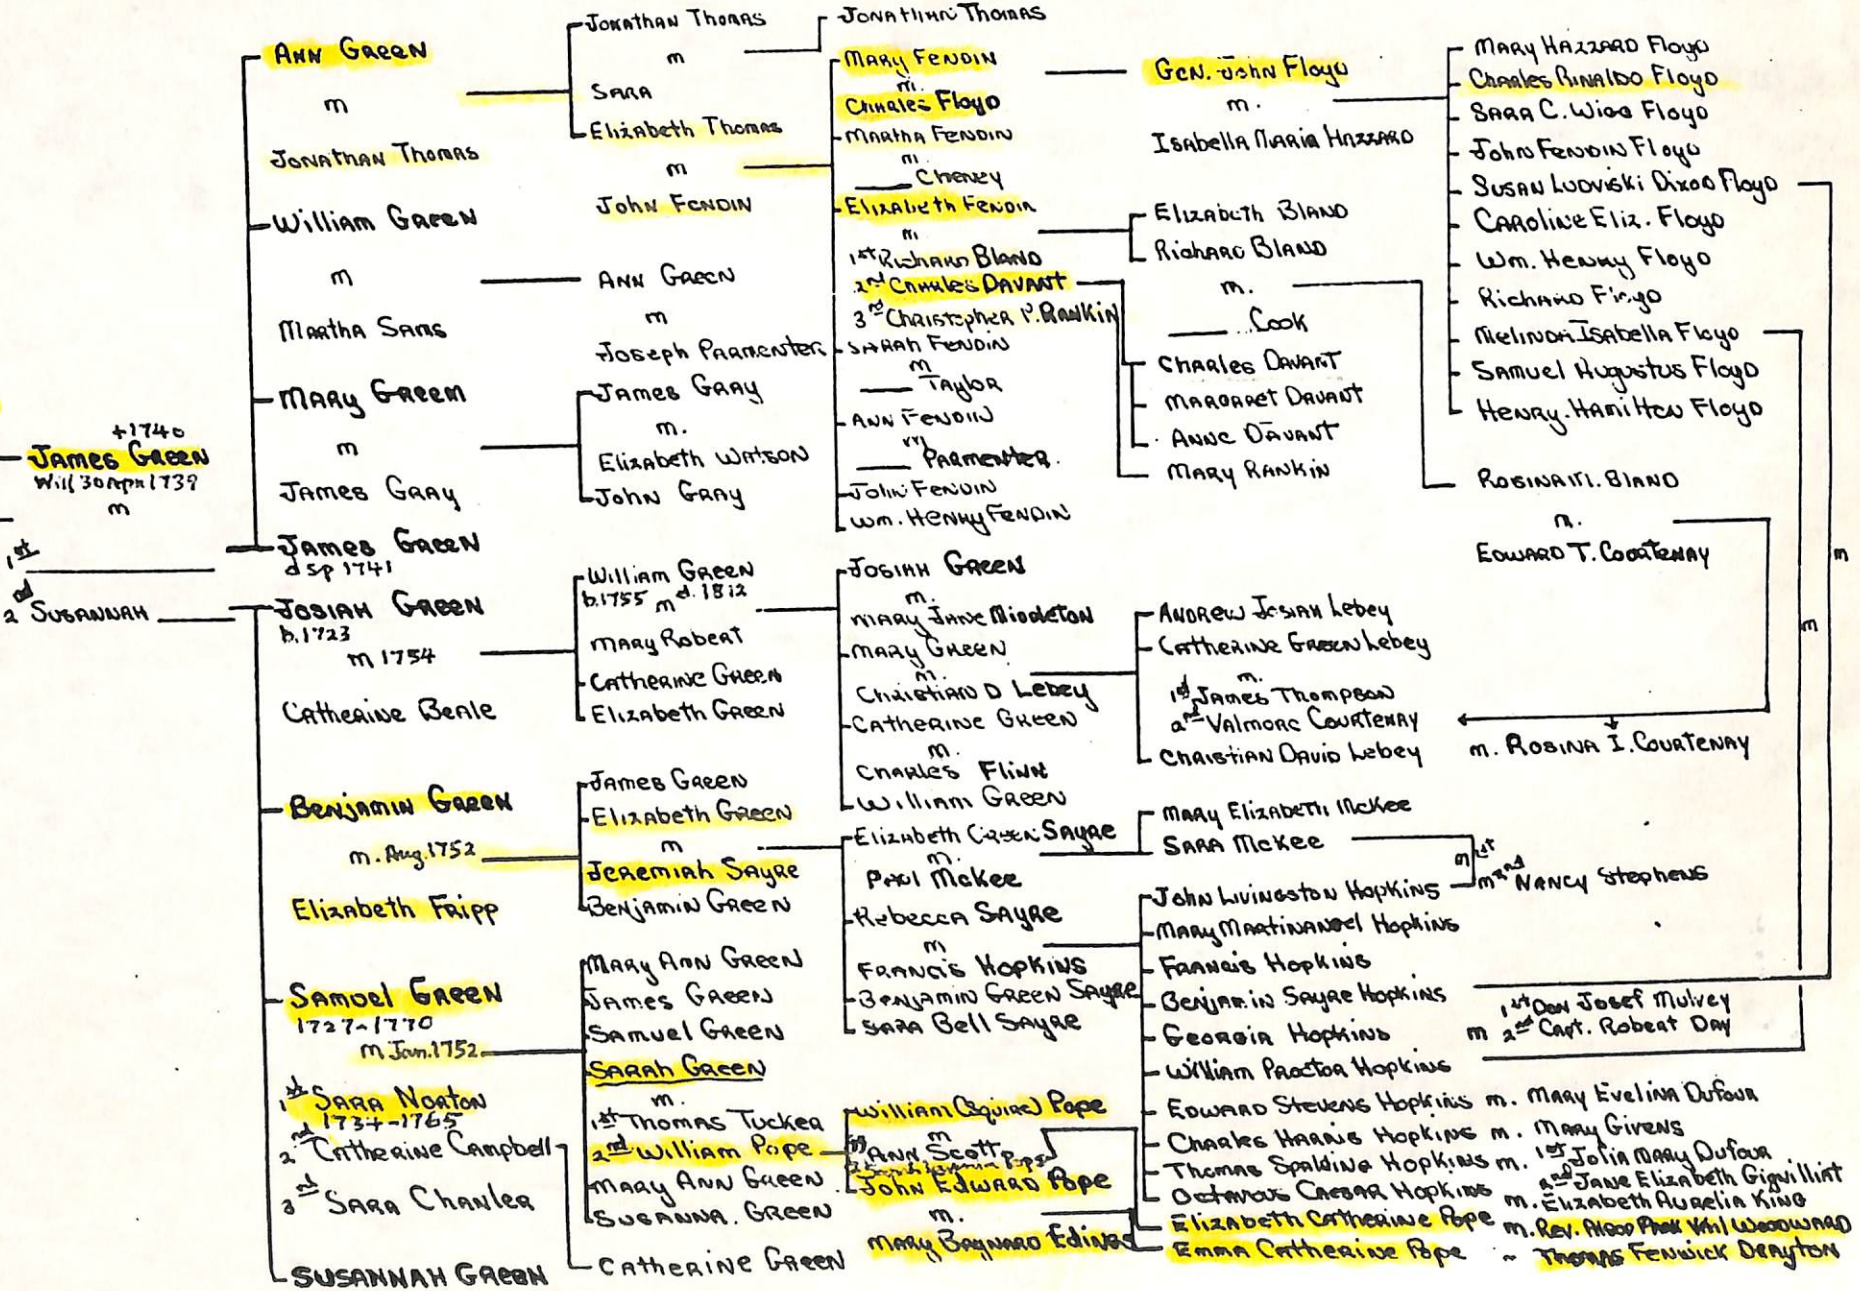 +1740
James Green
Will 30 Apr 1739
m
1st
2nd Susannah
Ann Green
m
Jonathan Thomas
William Green
m
Martha Sams
Mary Green
m
James Gray
James Green
d sp 1741
Josiah Green
b.1723
m 1754
Catherine Beale
Benjamin Green
m. Aug. 1752
Elizabeth Fripp
Samuel Green
1727-1770
m Jan. 1752
1st Sara Norton
1734-1765
2nd Catherine Campbell
3rd Sara Chanler
Susannah Green
Jonathan Thomas
m
Sara
Elizabeth Thomas
m
John Fendin
Ann Green
m
Joseph Parmenter
James Gray
m.
Elizabeth Watson
John Gray
William Green
b.1755 m d.1812
Mary Robert
Catherine Green
Elizabeth Green
James Green
Elizabeth Green
m
Jeremiah Sayre
Benjamin Green
Mary Ann Green
James Green
Samuel Green
Sarah Green
m.
1st Thomas Tucker
2nd William Pope
Mary Ann Green
Susanna. Green
Catherine Green
Jonathan Thomas
Mary Fendin
m.
Charles Floyd
Martha Fendin
m.
____ Cheney
Elizabeth Fendin
m.
1st Richard Bland
2nd Charles Davant
3rd Christopher P. Rankin
Sarah Fendin
m
____ Taylor
Ann Fendin
m
____ Parmenter.
John Fendin
Wm. Henry Fendin
Josiah Green
m.
Mary Jane Middleton
Mary Green
m.
Christian D Lebey
Catherine Green
m.
Charles Flinn
William Green
Elizabeth Green Sayre
m.
Paul McKee
Rebecca Sayre
m
Francis Hopkins
Benjamin Green Sayre
Sara Bell Sayre
William (Squire) Pope
m
1st Ann Scott Pope
John Edward Pope
m.
Mary Baynard Edings
Gen. John Floyd
m.
Isabella Maria Hazzard
Elizabeth Bland
Richard Bland
m.
____ Cook
Charles Davant
Margaret Davant
Anne Davant
Mary Rankin
Andrew Josiah Lebey
Catherine Green Lebey
m.
1st James Thompson
2nd Valmore Courtenay
Christian David Lebey
Mary Elizabeth McKee
Sara McKee
m 1st
John Livingston Hopkins m 2nd Nancy Stephens
Mary Martinangel Hopkins
Francis Hopkins
Benjamin Sayre Hopkins
Georgia Hopkins m 1st Don Josef Mulvey
2nd Capt. Robert Day
William Proctor Hopkins
Edward Stevens Hopkins m. Mary Evelina Dufour
Charles Harris Hopkins m. Mary Givens
Thomas Spalding Hopkins m. 1st Julia Mary Dufour
2nd Jane Elizabeth Gignilliat
Octavus Caesar Hopkins m. Elizabeth Aurelia King
Elizabeth Catherine Pope m. Rev. Woodward
Emma Catherine Pope ~ Thomas Fenwick Drayton
Mary Hazzard Floyd
Charles Rinaldo Floyd
Sara C. Wigg Floyd
John Fendin Floyd
Susan Ludviski Dixon Floyd
Caroline Eliz. Floyd
Wm. Henry Floyd
Richard Floyd
Melinda Isabella Floyd
Samuel Augustus Floyd
Henry. Hamilton Floyd
Bland
m.
Edward T. Courtenay
m. Rosina I. Courtenay
m
m